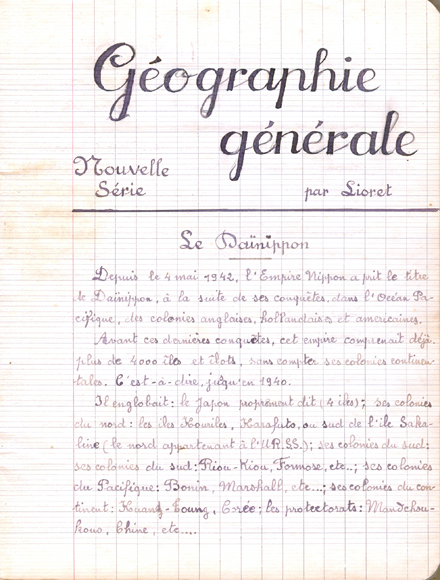 Géographie
générale
Nouvelle
Série
par Lioret
Le Daïnippon
Depuis le 4 mai 1942, l'Empire Nippon a prit le titre
de Daïnippon, à la suite de ses conquêtes, dans l'Océan Pa-
cifique, des colonies anglaises, hollandaises et americaines.
Avant ces dernières conquêtes, cet empire comprenait déjà
plus de 4000 îles et îlots, sans compter ses colonies continen-
tales. C'est-à-dire, jusqu'en 1940.
Il englobait: le Japon proprement dit (4 îles); ses colonies
du nord: les îles Kouriles, Karafuto, ou sud de l'île Saka-
line (le nord appartenant à l'U.R.S.S.); ses colonies du sud:
ses colonies du sud: Riou-Kiou, Formose, etc..; ses colonies
du Pacifique: Bonin, Marshall, etc...; ses colonies du con-
tinent: Kuang-Toung, Corée; les protectorats: Mandchou-
kouo, Chine, etc....